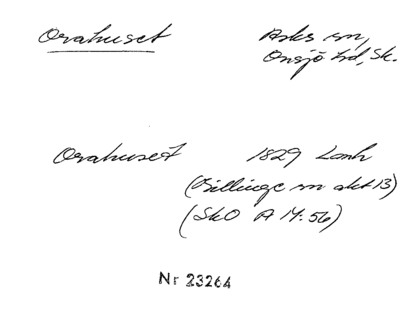 Orahuset Asks sn,
Onsjö hd, Sk.
Orahuset 1829 Lanh
(Billinge sn akt 13)
(SkO A 14:56)
Nr 23264